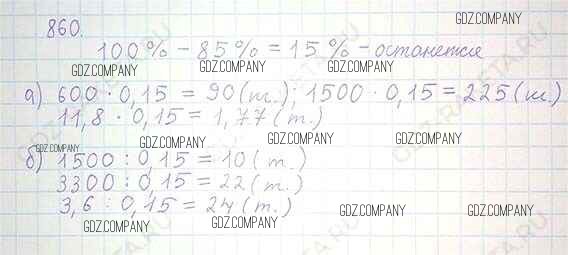 860.
GDZ.COMPANY
100% - 85% = 15% - останется
GDZ.COMPANY GDZ.COMPANY GDZ.COMPANY
а) 600 · 0,15 = 90 (т.); 1500 · 0,15 = 225 (т.)
11,8 · 0,15 = 1,77 (т.)
GDZ.COMPANY GDZ.COMPANY GDZ.COMPANY
GDZ.COMPANY
б) 1500 : 0,15 = 10 (т.)
3300 : 0,15 = 22 (т.)
3,6 : 0,15 = 24 (т.)
GDZ.COMPANY GDZ.COMPANY GDZ.COMPANY
GDZ-RAKETA.RU